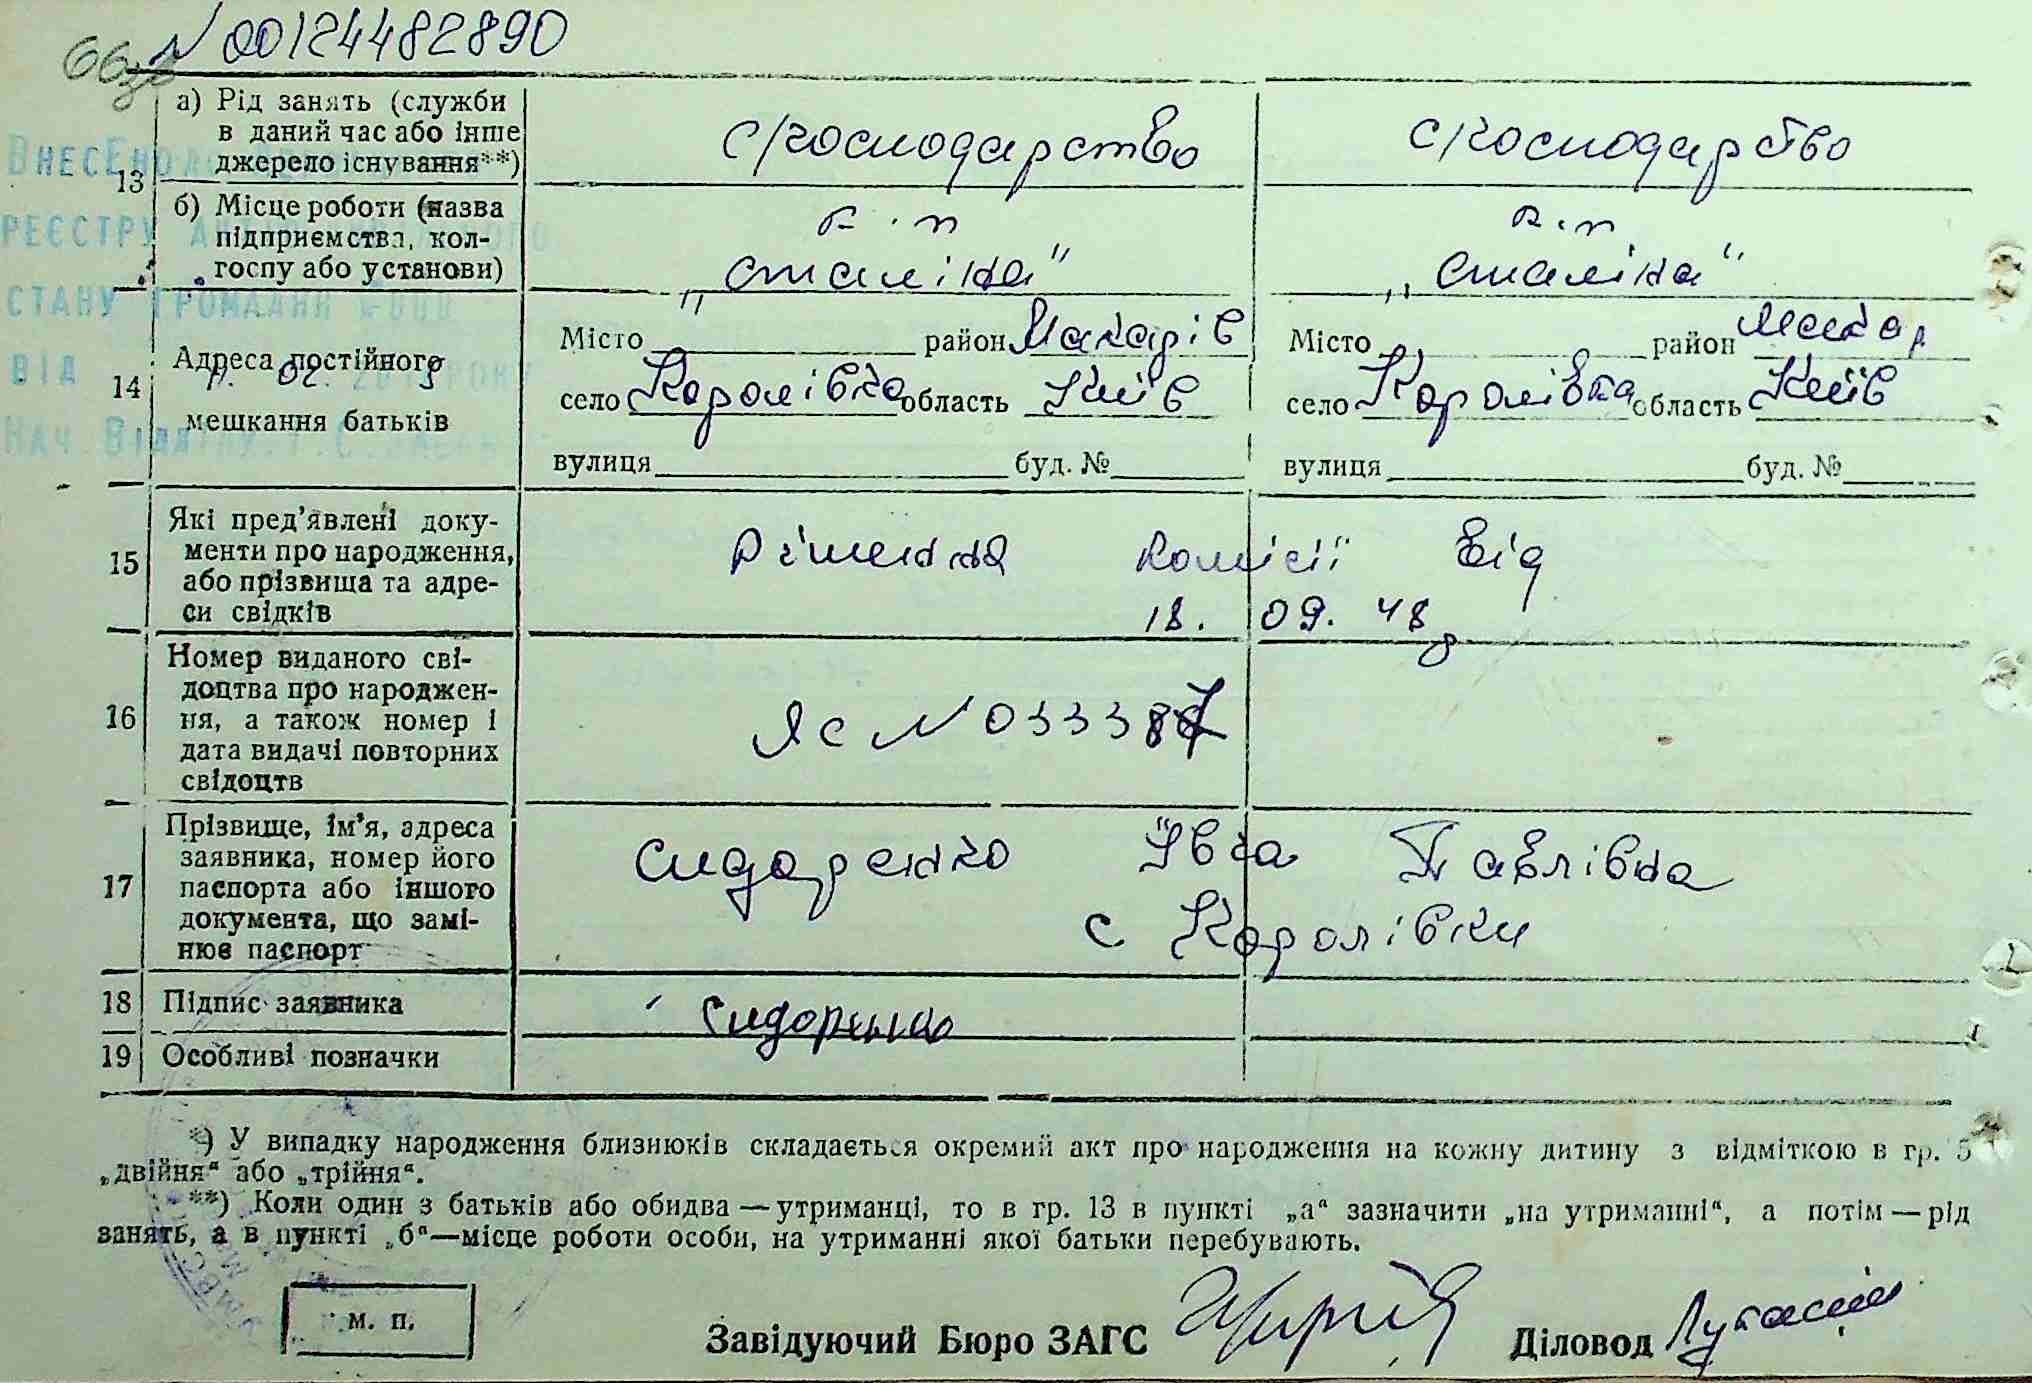 N 00124482890
66зв
ВНЕСЕНО ДО
РЕЄСТРУ АКТІВ
СТАНУ ГРОМАДЯН
ВІД
НАЧ. ВІДДІЛУ
13
а) Рід занять (служби
в даний час або інше
джерело існування**)
с/господарство
с/господарство
б) Місце роботи (назва
підприємства, кол-
госпу або установи)
к. ім
„Сталіна"
к. ім
„Сталіна"
14
Адреса постійного
мешкання батьків
Місто район Макарів
село Королівка область Київ
вулиця буд. №
Місто район Макар
село Королівка область Київ
вулиця буд. №
15
Які пред'явлені доку-
менти про народження,
або прізвища та адре-
си свідків
Рішення комісії від
18. 09. 48 р
16
Номер виданого сві-
доцтва про народжен-
ня, а також номер і
дата видачі повторних
свідоцтв
ЯС N 033387
17
Прізвище, ім'я, адреса
заявника, номер його
паспорта або іншого
документа, що замі-
нює паспорт
Сидоренко Ївга Павлівна
с Королівки
18
Підпис заявника
Сидоренко
19
Особливі позначки
*) У випадку народження близнюків складається окремий акт про народження на кожну дитину з відміткою в гр. 5
„двійня" або „трійня".
**) Коли один з батьків або обидва — утриманці, то в гр. 13 в пункті „а" зазначити „на утриманні", а потім — рід
занять, а в пункті „б"—місце роботи особи, на утриманні якої батьки перебувають.
м. п.
Завідуючий Бюро ЗАГС
Діловод